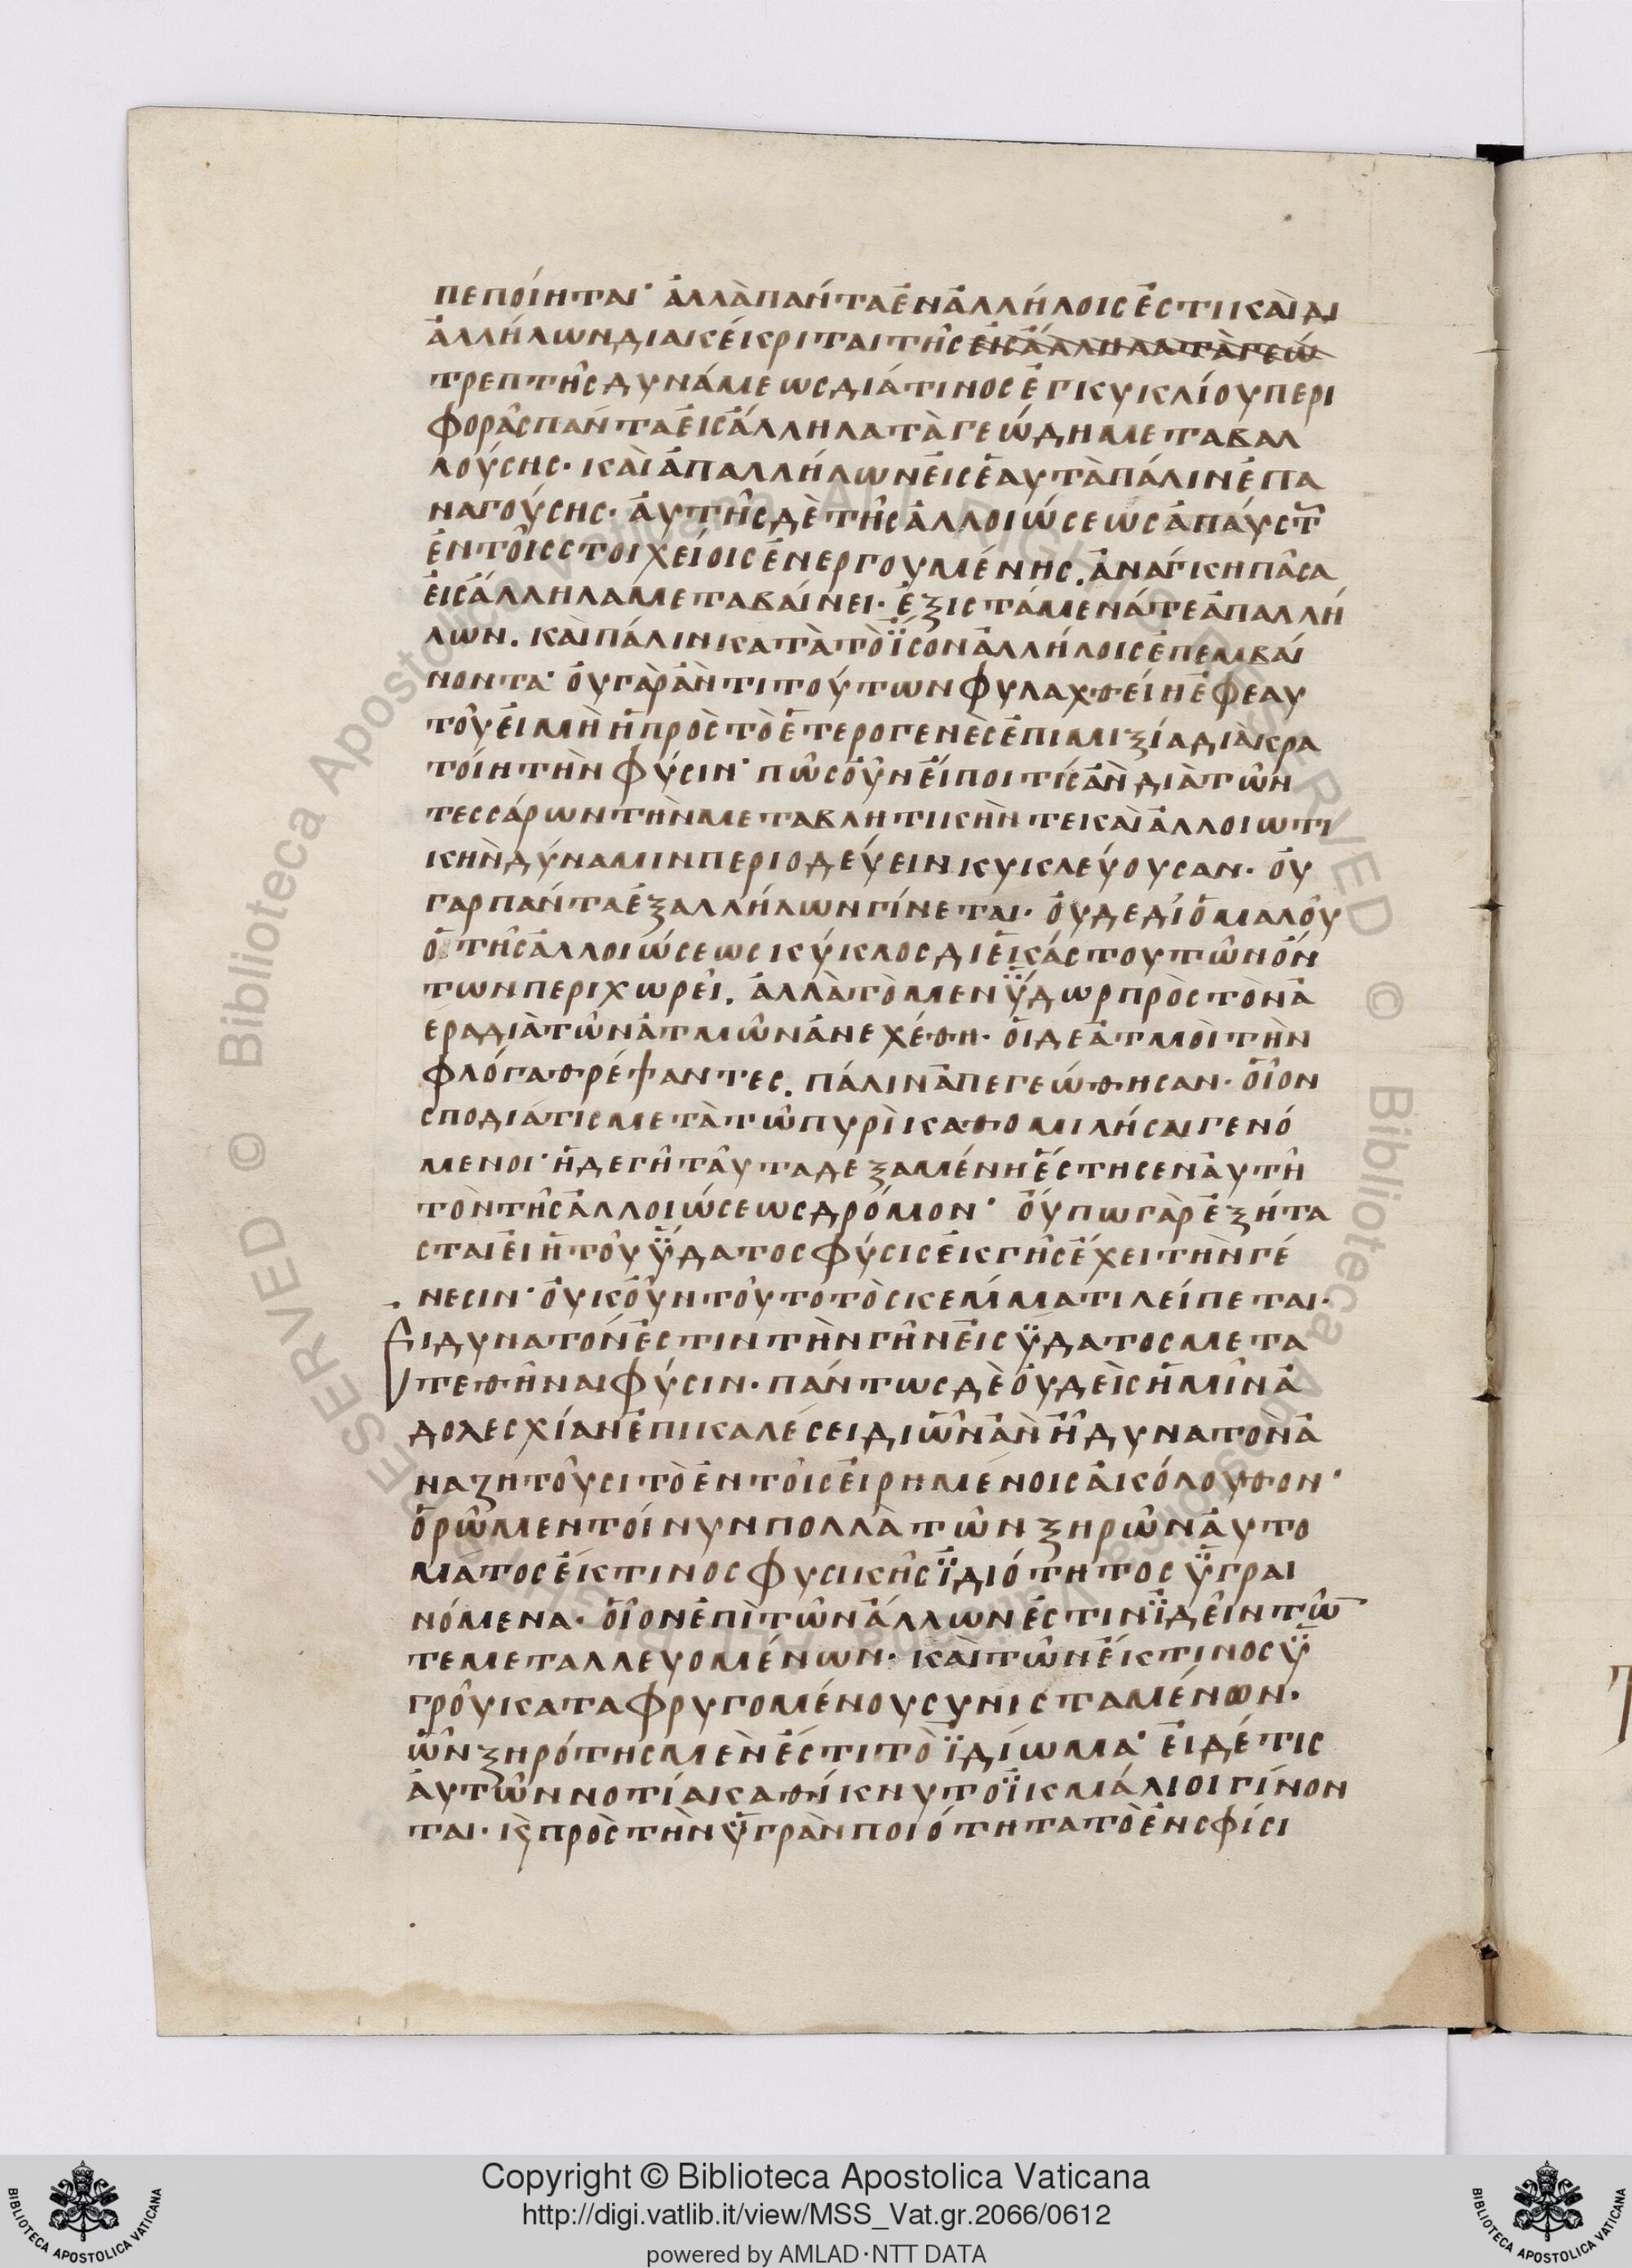 πεποίηται· ἀλλὰ πάντα ἐν ἀλλήλοις ἐστὶ καὶ δι
ἀλλήλων διακέκριται τῆς εἰς ἄλληλα τὰ γεώ
τρεπτῆς δυνάμεως διά τινος ἐγκυκλίου περι
φορᾶς πάντα εἰς ἄλληλα τὰ γεώδη μεταβαλ
λούσης· καὶ ἀπαλλήλων εἰς ἑαυτὰ πάλιν ἐπα
ναγούσης· αὐτῆς δὲ τῆς ἀλλοιώσεως ἀπαύστ
ἐν τοῖς στοιχείοις ἐνεργουμένης. ἀνάγκη πᾶσα
εἰς ἄλληλα μεταβαίνει· ἐξιστάμενά τε ἀπαλλή
λων. καὶ πάλιν κατὰ τὸ ἴσον ἀλλήλοις ἐπεμβαί
νοντα· οὐ γὰρ ἄν τι τούτων φυλαχθείη ἐφ εαυ
τοῦ εἰ μὴ ἡ πρὸς τὸ ἑτερογενὲς ἐπιμιξία διακρα
τοίη τὴν φύσιν· πῶς οὖν εἴποι τίς ἂν διὰ τῶν
τεσσάρων τὴν μεταβλητικήν τε καὶ ἀλλοιωτι
κὴν δύναμιν περιοδεύειν κυκλεύουσαν· οὐ
γαρ πάντα ἐξ αλλήλων γίνεται· οὐδε δι ὁμαλοῦ
ὁ τῆς ἀλλοιώσεως κύκλος δι ἑκάστου τῶν ὄν
των περιχωρεῖ. ἀλλὰ τὸ μεν ὕδωρ πρὸς τὸν ἀ
έρα διὰ τῶν ἀτμῶν ἀνεχέθη· οἱ δε ἀτμοὶ τὴν
φλόγα θρέψαντες. πάλιν ἀπεγεώθησαν· οἷον
σποδιά τις μετὰ τῶ πυρὶ καθομιλήσαι γενό
μενοι· ἡ δε γῆ ταῦτα δεξαμένη ἔστησεν αὐτῆ
τὸν τῆς ἀλλοιώσεως δρόμον· οὔπω γὰρ ἐξήτα
σται εἰ ἡ τοῦ ὕδατος φύσις ἐκ γῆς ἔχει τὴν γέ
νεσιν· οὐκοῦν τοῦτο τὸ σκέμματι λείπεται·
Ει δυνατόν ἐστιν τὴν γῆν εἰς ὕδατος μετα
τεθῆναι φύσιν· πάντως δὲ οὐδεὶς ἡμῖν ἀ
δολεσχίαν ἐπικαλέσει δι ὧν ἂν ἦ δυνατὸν ἀ
ναζητοῦσι τὸ ἐν τοῖς εἰρημένοις ἀκόλουθον·
ὁρῶμεν τοίνυν πολλὰ τῶν ξηρῶν αὐτο
μάτος ἔκ τινος φυσικῆς ἰδιότητος ὑγραι
νόμενα· οἷον ἐπὶ τῶν ἄλλων ἐστιν ἰδεῖν τῶ̅
τε μεταλλευομένων· καὶ τῶν ἔκ τινος ὑ
γροῦ καταφρυγομένου συνισταμένων.
ὧν ξηρότης μὲν ἐστι τὸ ἰδίωμα· εἰ δέ τις
αὐτῶν νοτία καθίκνυτο ἰκμάλιοι γίνον
ται· κ̀ πρὸς τὴν ὑγρὰν ποιότητα τὸ ἐν σφίσι
Copyright © Biblioteca Apostolica Vaticana
http://digi.vatlib.it/view/MSS_Vat.gr.2066/0612
powered by AMLAD·NTT DATA